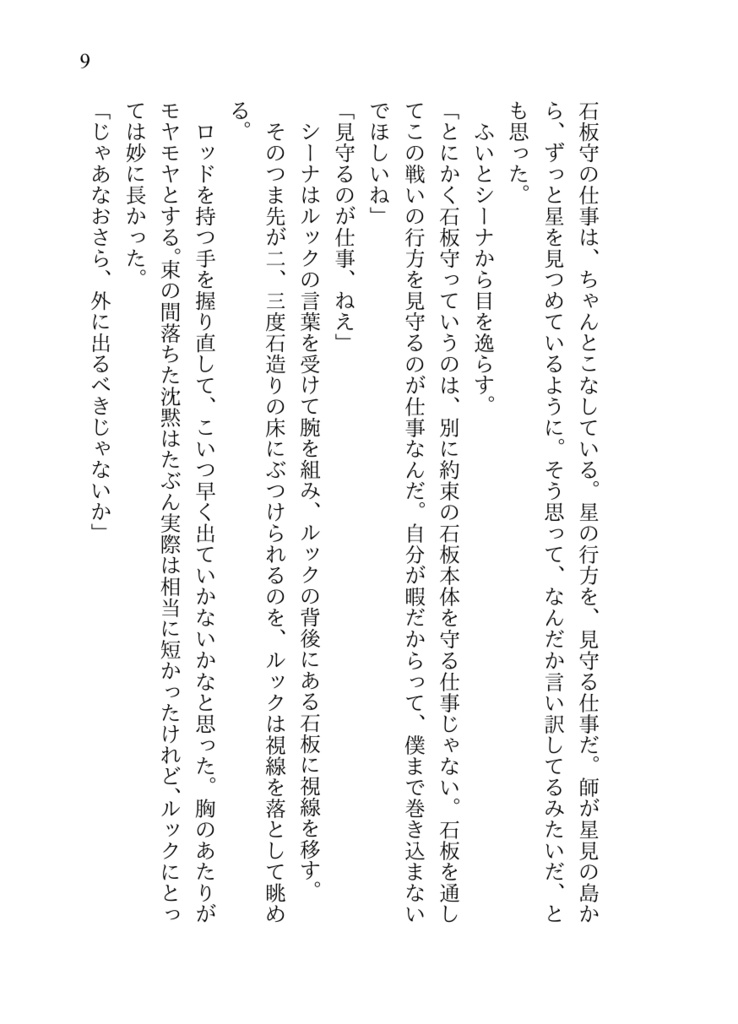 9
石板守の仕事は、ちゃんとこなしている。星の行方を、見守る仕事だ。師が星見の島か
ら、ずっと星を見つめているように。そう思って、なんだか言い訳してるみたいだ、と
も思った。
　ふいとシーナから目を逸らす。
「とにかく石板守っていうのは、別に約束の石板本体を守る仕事じゃない。石板を通し
てこの戦いの行方を見守るのが仕事なんだ。自分が暇だからって、僕まで巻き込まない
でほしいね」
「見守るのが仕事、ねえ」
　シーナはルックの言葉を受けて腕を組み、ルックの背後にある石板に視線を移す。
　そのつま先が二、三度石造りの床にぶつけられるのを、ルックは視線を落として眺め
る。
　ロッドを持つ手を握り直して、こいつ早く出ていかないかなと思った。胸のあたりが
モヤモヤとする。束の間落ちた沈黙はたぶん実際は相当に短かったけれど、ルックにとっ
ては妙に長かった。
「じゃあなおさら、外に出るべきじゃないか」